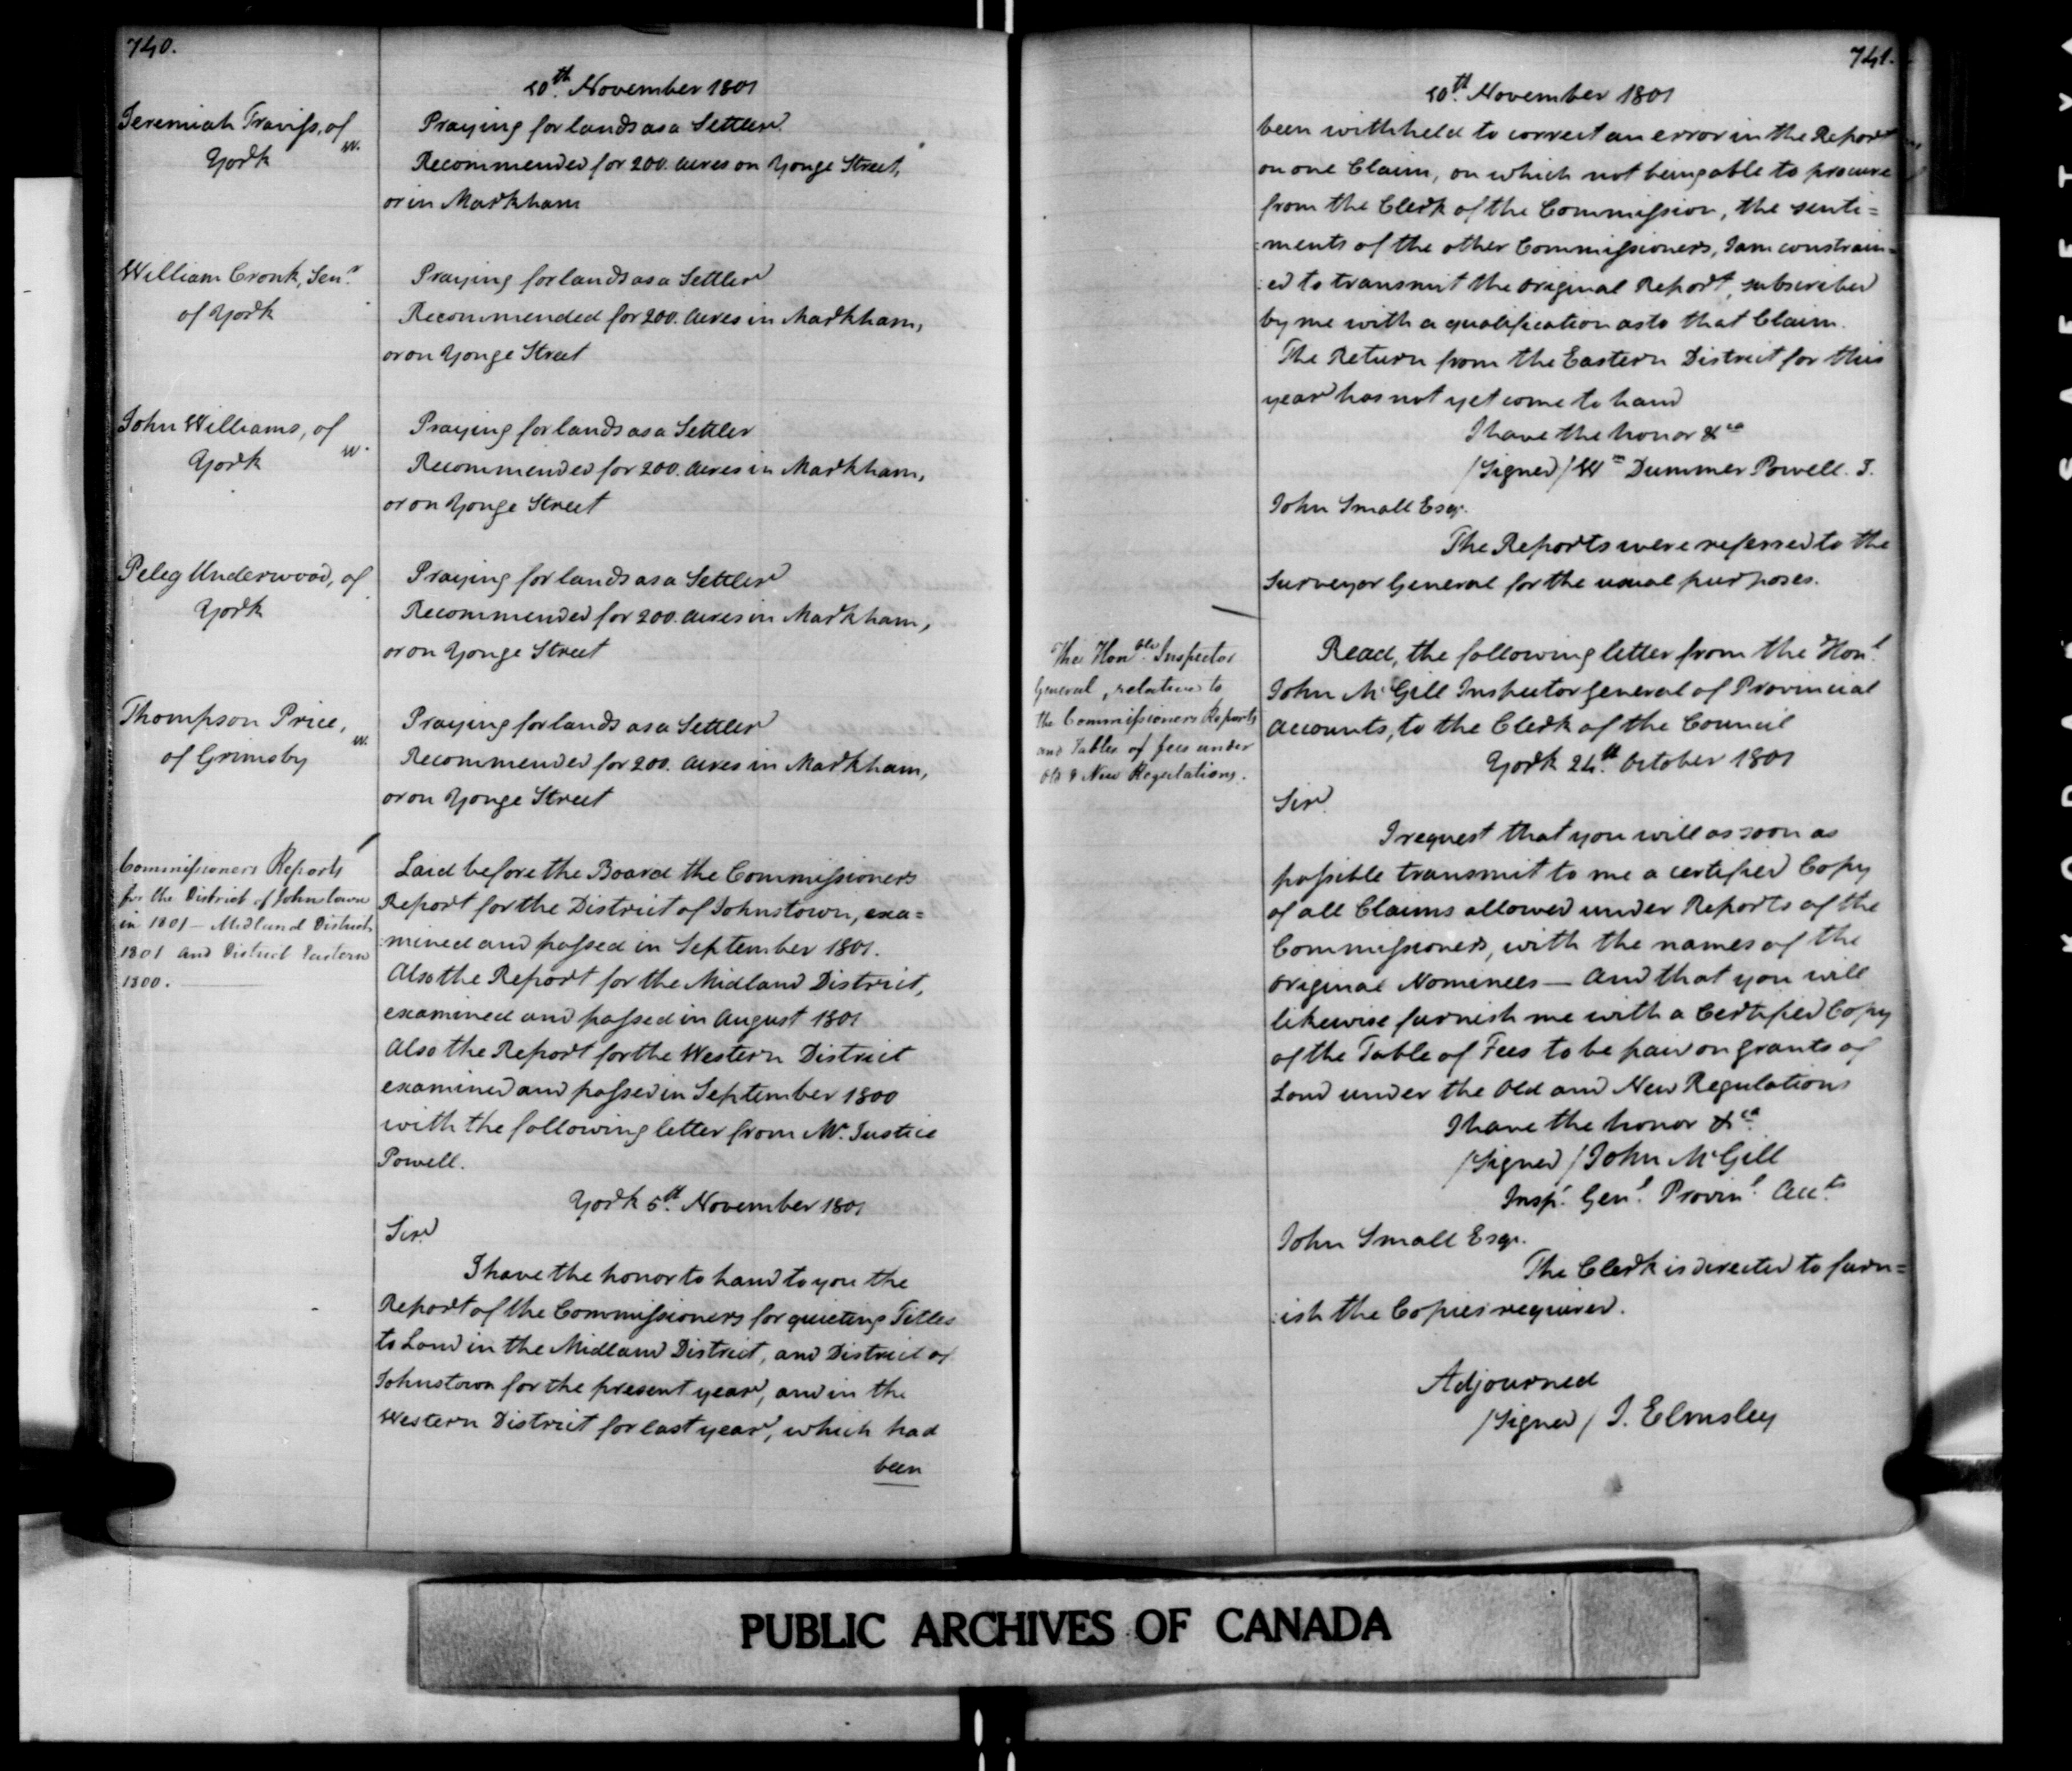 740.
10th. November 1801
Jeremiah Traviss, of
York
W.
Praying for lands as a Settler.
Recommended for 200. Acres on Yonge Street,
or in Markham
William Cronk, Senr.
of York
Praying for lands as a Settler
Recommended for 200. Acres in Markham,
or on Yonge Street
John Williams, of
York
W.
Praying for lands as a Settler
Recommended for 200. Acres in Markham,
or on Yonge Street
Peleg Underwood, of
York
Praying for lands as a Settler
Recommended for 200. Acres in Markham,
or on Yonge Street
Thompson Price,
of Grimsby
W.
Praying for lands as a Settler
Recommended for 200. Acres in Markham,
or on Yonge Street
Commissioners Reports
for the District of Johnstown
in 1801 — Midland District
1801 and District Eastern
1800.
Laid before the Board the Commissioners
Report for the District of Johnstown, exa=
:mined and passed in September 1801.
Also the Report for the Midland District,
examined and passed in August 1801
Also the Report for the Western District
examined and passed in September 1800
with the following letter from Mr. Justice
Powell.
York 5th. November 1801
Sir.
I have the honor to hand to you the
Report of the Commissioners for quieting Titles
to Land in the Midland District, and District of
Johnstown for the present year, and in the
Western District for last year, which had
been
741.
10th. November 1801
been withheld to correct an error in the Report
on one Claim, on which not being able to procure
from the Clerk of the Commission, the senti=
:ments of the other Commissioners, I am constrain=
:ed to transmit the original Report, subscribed
by me with a qualification as to that Claim.
The Return from the Eastern District for this
year has not yet come to hand
I have the honor &ca
/Signed/ Wm Dummer Powell. J.
John Small Esqr.
The Reports were referred to the
Surveyor General for the usual purposes.
The Honble. Inspector
General, relative to
the Commissioners Reports
and Tables of fees under
Old & New Regulations.
Read, the following letter from the Honl.
John McGill Inspector general of Provincial
Accounts, to the Clerk of the Council
York 24th. October 1801
Sir.
I request that you will as soon as
possible transmit to me a certified Copy
of all Claims allowed under Reports of the
Commissioners, with the names of the
original Nominees — And that you will
likewise furnish me with a Certified Copy
of the Table of Fees to be paid on grants of
Land under the Old and New Regulations
I have the honor &ca.
/Signed/ John McGill
Inspr. Genl. Provinl. Accts.
John Small Esqr.
The Clerk is directed to furn=
:ish the Copies required.
Adjourned
/Signed/ J. Elmsley
PUBLIC ARCHIVES OF CANADA